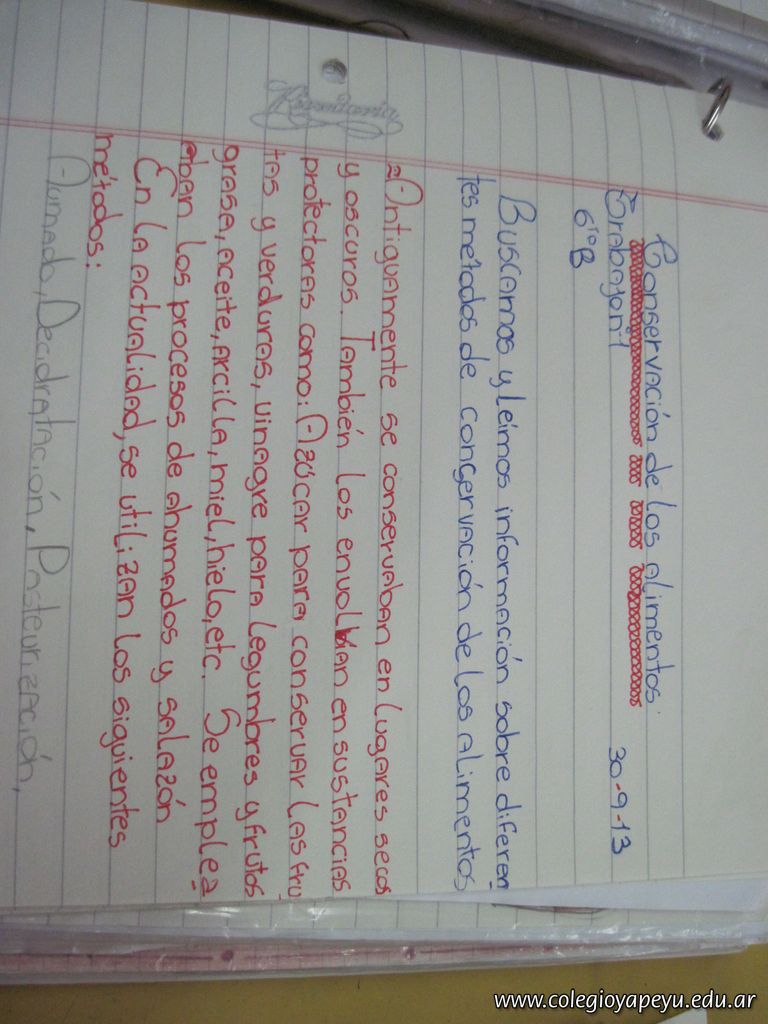 Conservación de los alimentos.
Trabajo nº1 30-9-13
6to B
Buscamos y leímos información sobre diferen
tes métodos de conservación de los alimentos
2 Antiguamente se conservaban en lugares secos
y oscuros. También los envolvían en sustancias
protectoras como: Azúcar para conservar las fru
tas y verduras, vinagre para legumbres y frutos
grasa, aceite, arcilla, miel, hielo, etc. Se emplea
aban los procesos de ahumados y salazón
En la actualidad, se utilizan los siguientes
métodos:
Ahumado, Decidratación, Pasteurización,
www.colegioyapeyu.edu.ar